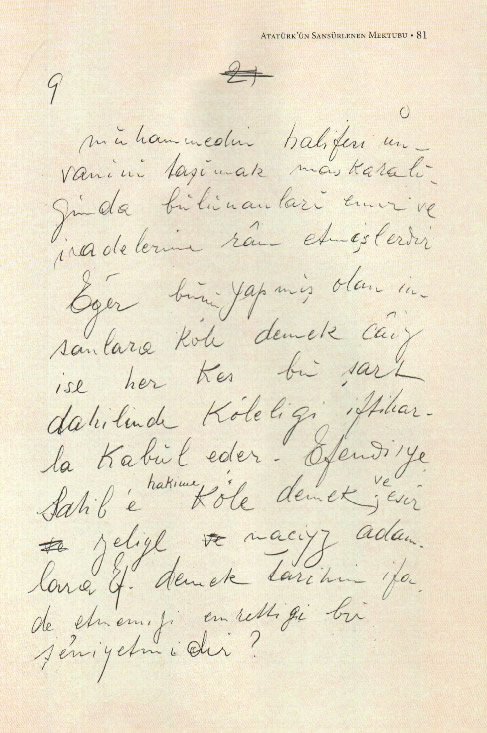 ATATÜRK'ÜN SANSÜRLENEN MEKTUBU • 81
9
21
O
mühammedin halifesi ün-
vanini taşimak maskarali-
ğinda bülünanlari emri ve
iradelerine râm etmişlerdir
Eğer bünü yapmiş olan in-
sanlara Köle demek câiz
ise her Kes bu şart
dahilinde Köleligi iftihar-
la Kabül eder. Efendiye
hakime ve
Sahib'e Köle demek, esir
ve zelil ve naciyz adam-
lara Ef. demek tarihin ifa-
de etmeyi emrettigi bir
şe'niyetmidir?